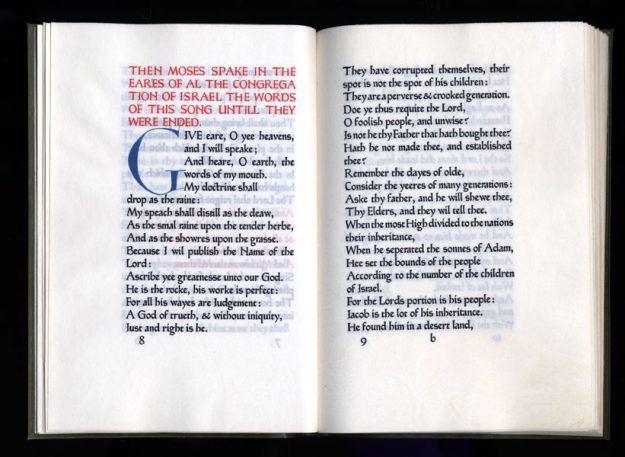 THEN MOSES SPAKE IN THE
EARES OF AL THE CONGREGA
TION OF ISRAEL THE WORDS
OF THIS SONG UNTILL THEY
WERE ENDED.
GIVE eare, O yee heavens,
and I will speake;
And heare, O earth, the
words of my mouth.
My doctrine shall
drop as the raine:
My speach shall distill as the deaw,
As the smal raine upon the tender herbe,
And as the showres upon the grasse.
Because I wil publish the Name of the
Lord:
Ascribe yee greatnesse unto our God.
He is the rocke, his worke is perfect:
For all his wayes are Judgement:
A God of trueth, & without iniquity,
Just and right is he.
8
They have corrupted themselves, their
spot is not the spot of his children:
They are a perverse & crooked generation.
Doe ye thus requite the Lord,
O foolish people, and unwise?
Is not he thy Father that hath bought thee?
Hath he not made thee, and established
thee?
Remember the dayes of olde,
Consider the yeeres of many generations:
Aske thy father, and he will shewe thee,
Thy Elders, and they wil tell thee.
When the most High divided to the nations
their inheritance,
When he seperated the sonnes of Adam,
Hee set the bounds of the people
According to the number of the children
of Israel.
For the Lords portion is his people:
Iacob is the lot of his inheritance.
He found him in a desert land,
9 b